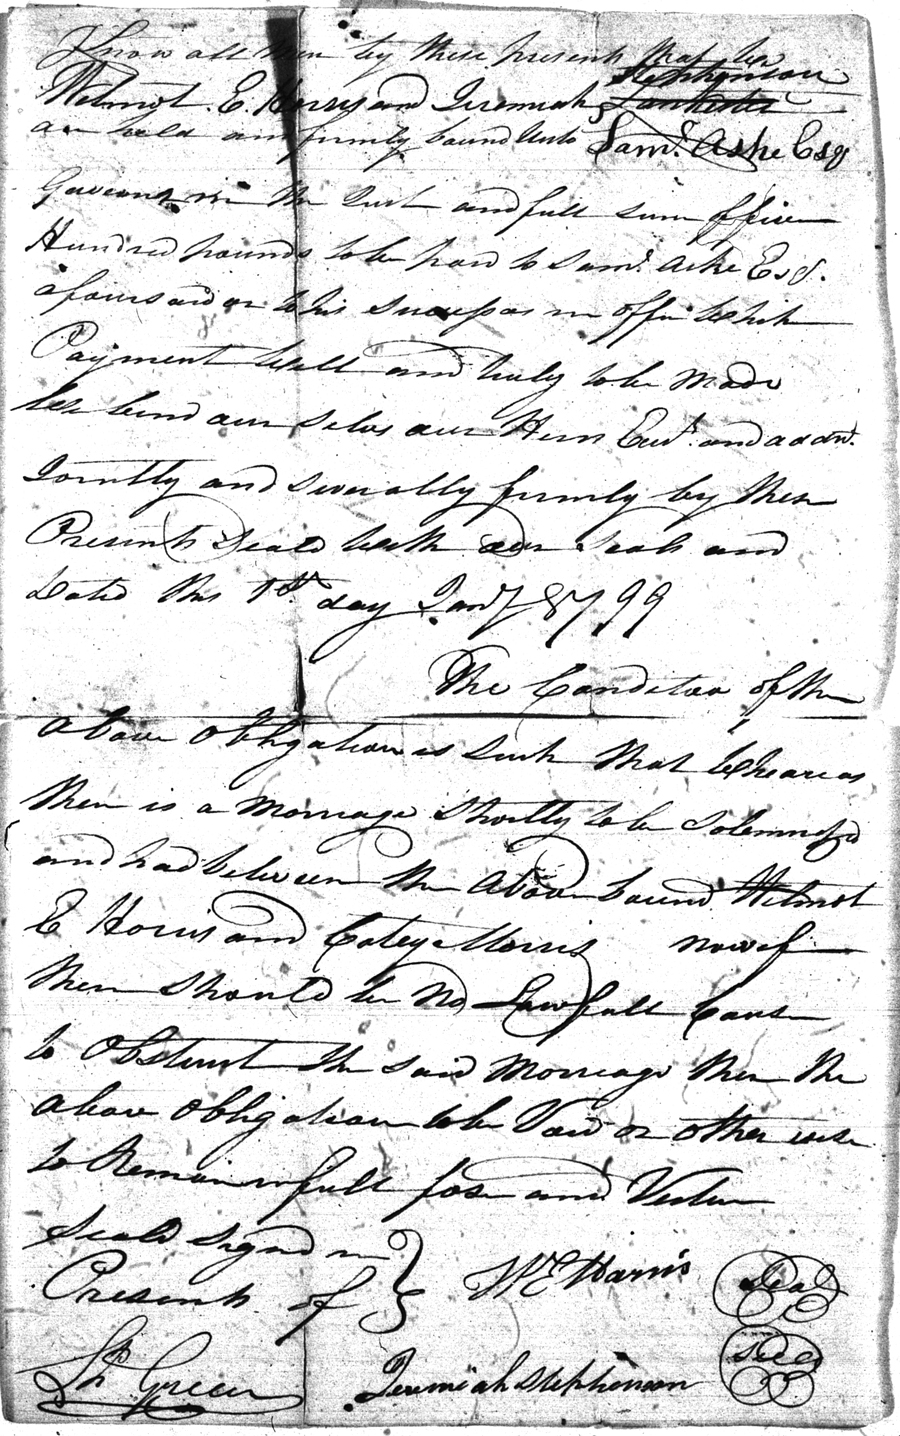 Know all men by these presents that we
Stephenson
Wilmot E. Harris and Jeremiah
are held and firmly bound unto Sam.l Ashe Esq
Governor in the Just and full sum of five
Hundred pounds to be paid to Sam.l Ashe Esq.
aforesaid or to his Successors in office which
Payment well and truly to be made
We bind our selves our Heirs Exe.rs and adm.
Jointly and severally firmly by these
Presents Seald with our Seals and
Dated this 1st day Jan.y 1799
The Condition of the
above obligation is such that Wheareas
there is a Marriage shortly to be solemnized
and had between the above bound Wilmot
E Harris and Catey Morris now if
there should be no Lawfull Cause
to obstruct the said Marriage then the
above obligation to be Void or other wise
to Remain in full force and Vertue
Seald signd in
Presents of
Wt E Harris Seal
Sh Green
Jeremiah Stephenson Seal